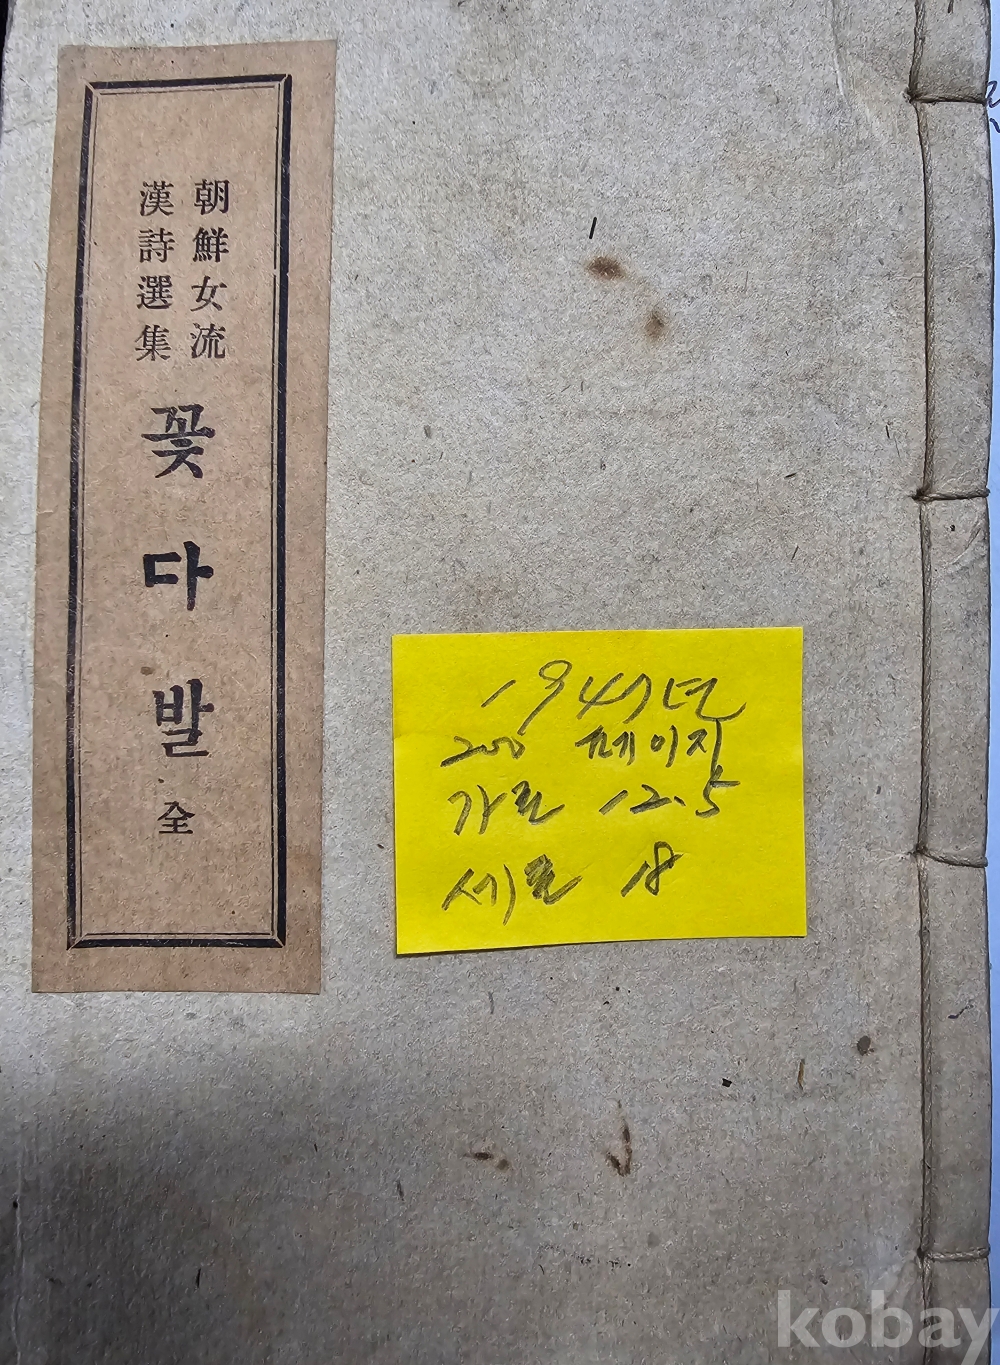 朝鮮女流
漢詩選集
꽃다발 全
1947년
200 페이지
가로 12.5
세로 18
kobay